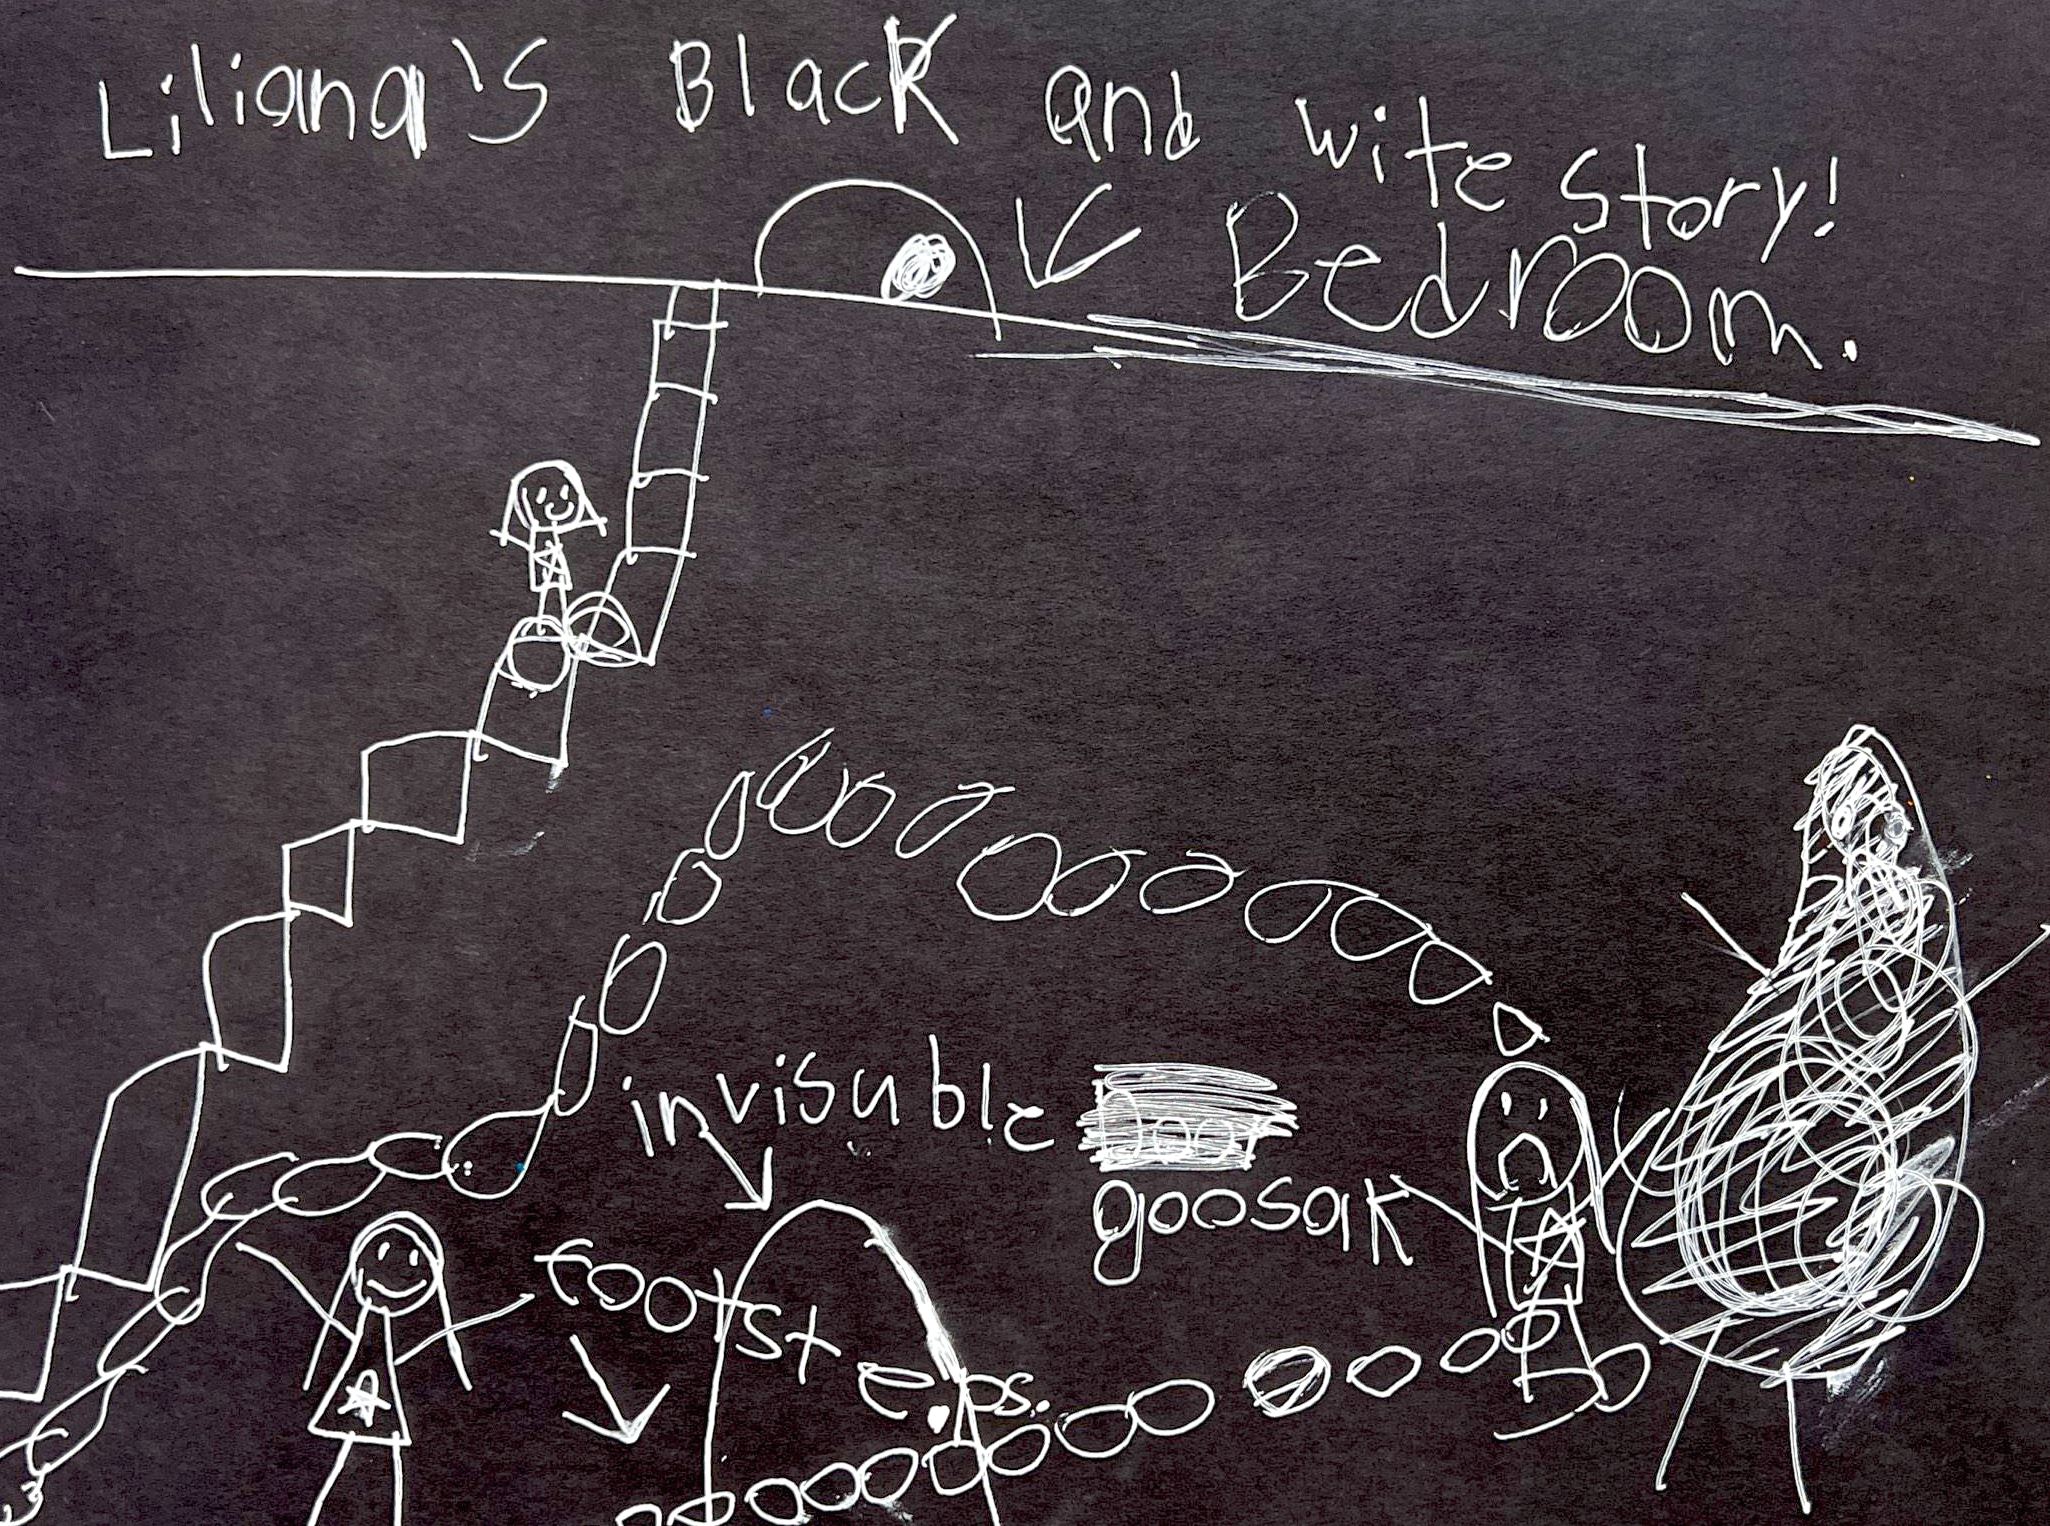 Liliana's Black and wite story!
Bedroom.
invisuble
goosak
Footsteps.